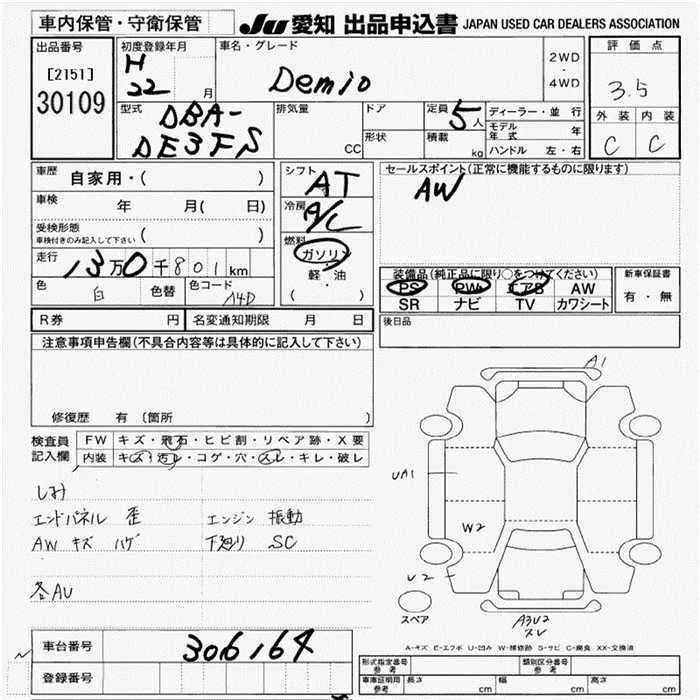 車内保管・守衛保管
JU 愛知 出品申込書 JAPAN USED CAR DEALERS ASSOCIATION
出品番号
[2151]
30109
初度登録年月
H
22 月
車名・グレード
Demio
2WD
・
4WD
評価点
3.5
外装 内装
C C
型式
DBA-
DE3FS
排気量
CC
ドア
形状
定員 5人
積載 kg
ディーラー・並行
モデル年式 年
ハンドル 左・右
車歴 自家用・( )
車検 年 月( 日)
受検形態
車検付きのみ記入して下さい ( )
走行 13万0千801km
色 白 色替 色コード A4D
シフト AT
冷房 A/C
燃料
ガソリン
軽・油
( )
セールスポイント(正常に機能するものに限ります)
AW
装備品(純正品に限り○をつけてください)
PS PW エアB AW
SR ナビ TV カワシート
新車保証書
有・無
R券 円 名変通知期限 月 日
後日品
注意事項申告欄(不具合内容等は具体的に記入して下さい)
修復歴 有 (箇所 )
検査員
記入欄
FW キズ・飛石・ヒビ割・リペア跡・X要
内装 キズ・汚レ・コゲ・穴・スレ・キレ・破レ
シミ
エンドパネル 歪 エンジン 振動
AW キズ ハゲ 下廻り SC
各AU
A1
UA1
W2
U2
スペア
A3U2
スレ
A-キズ E-エクボ U-凹み W-補修跡 S-サビ C-腐食 XX-交換済
車台番号 306164
登録番号
形式指定番号
参考
類別区分番号
参考
車庫証明用
参考
長さ cm 幅 cm 高さ cm